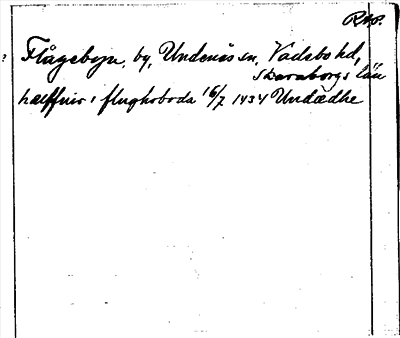 RAP.
Flågebyn, by, Undenäs sn, Vadsbo hd,
Skaraborgs län
hælffnir i flughoboda 16/7 1434 Undædhe